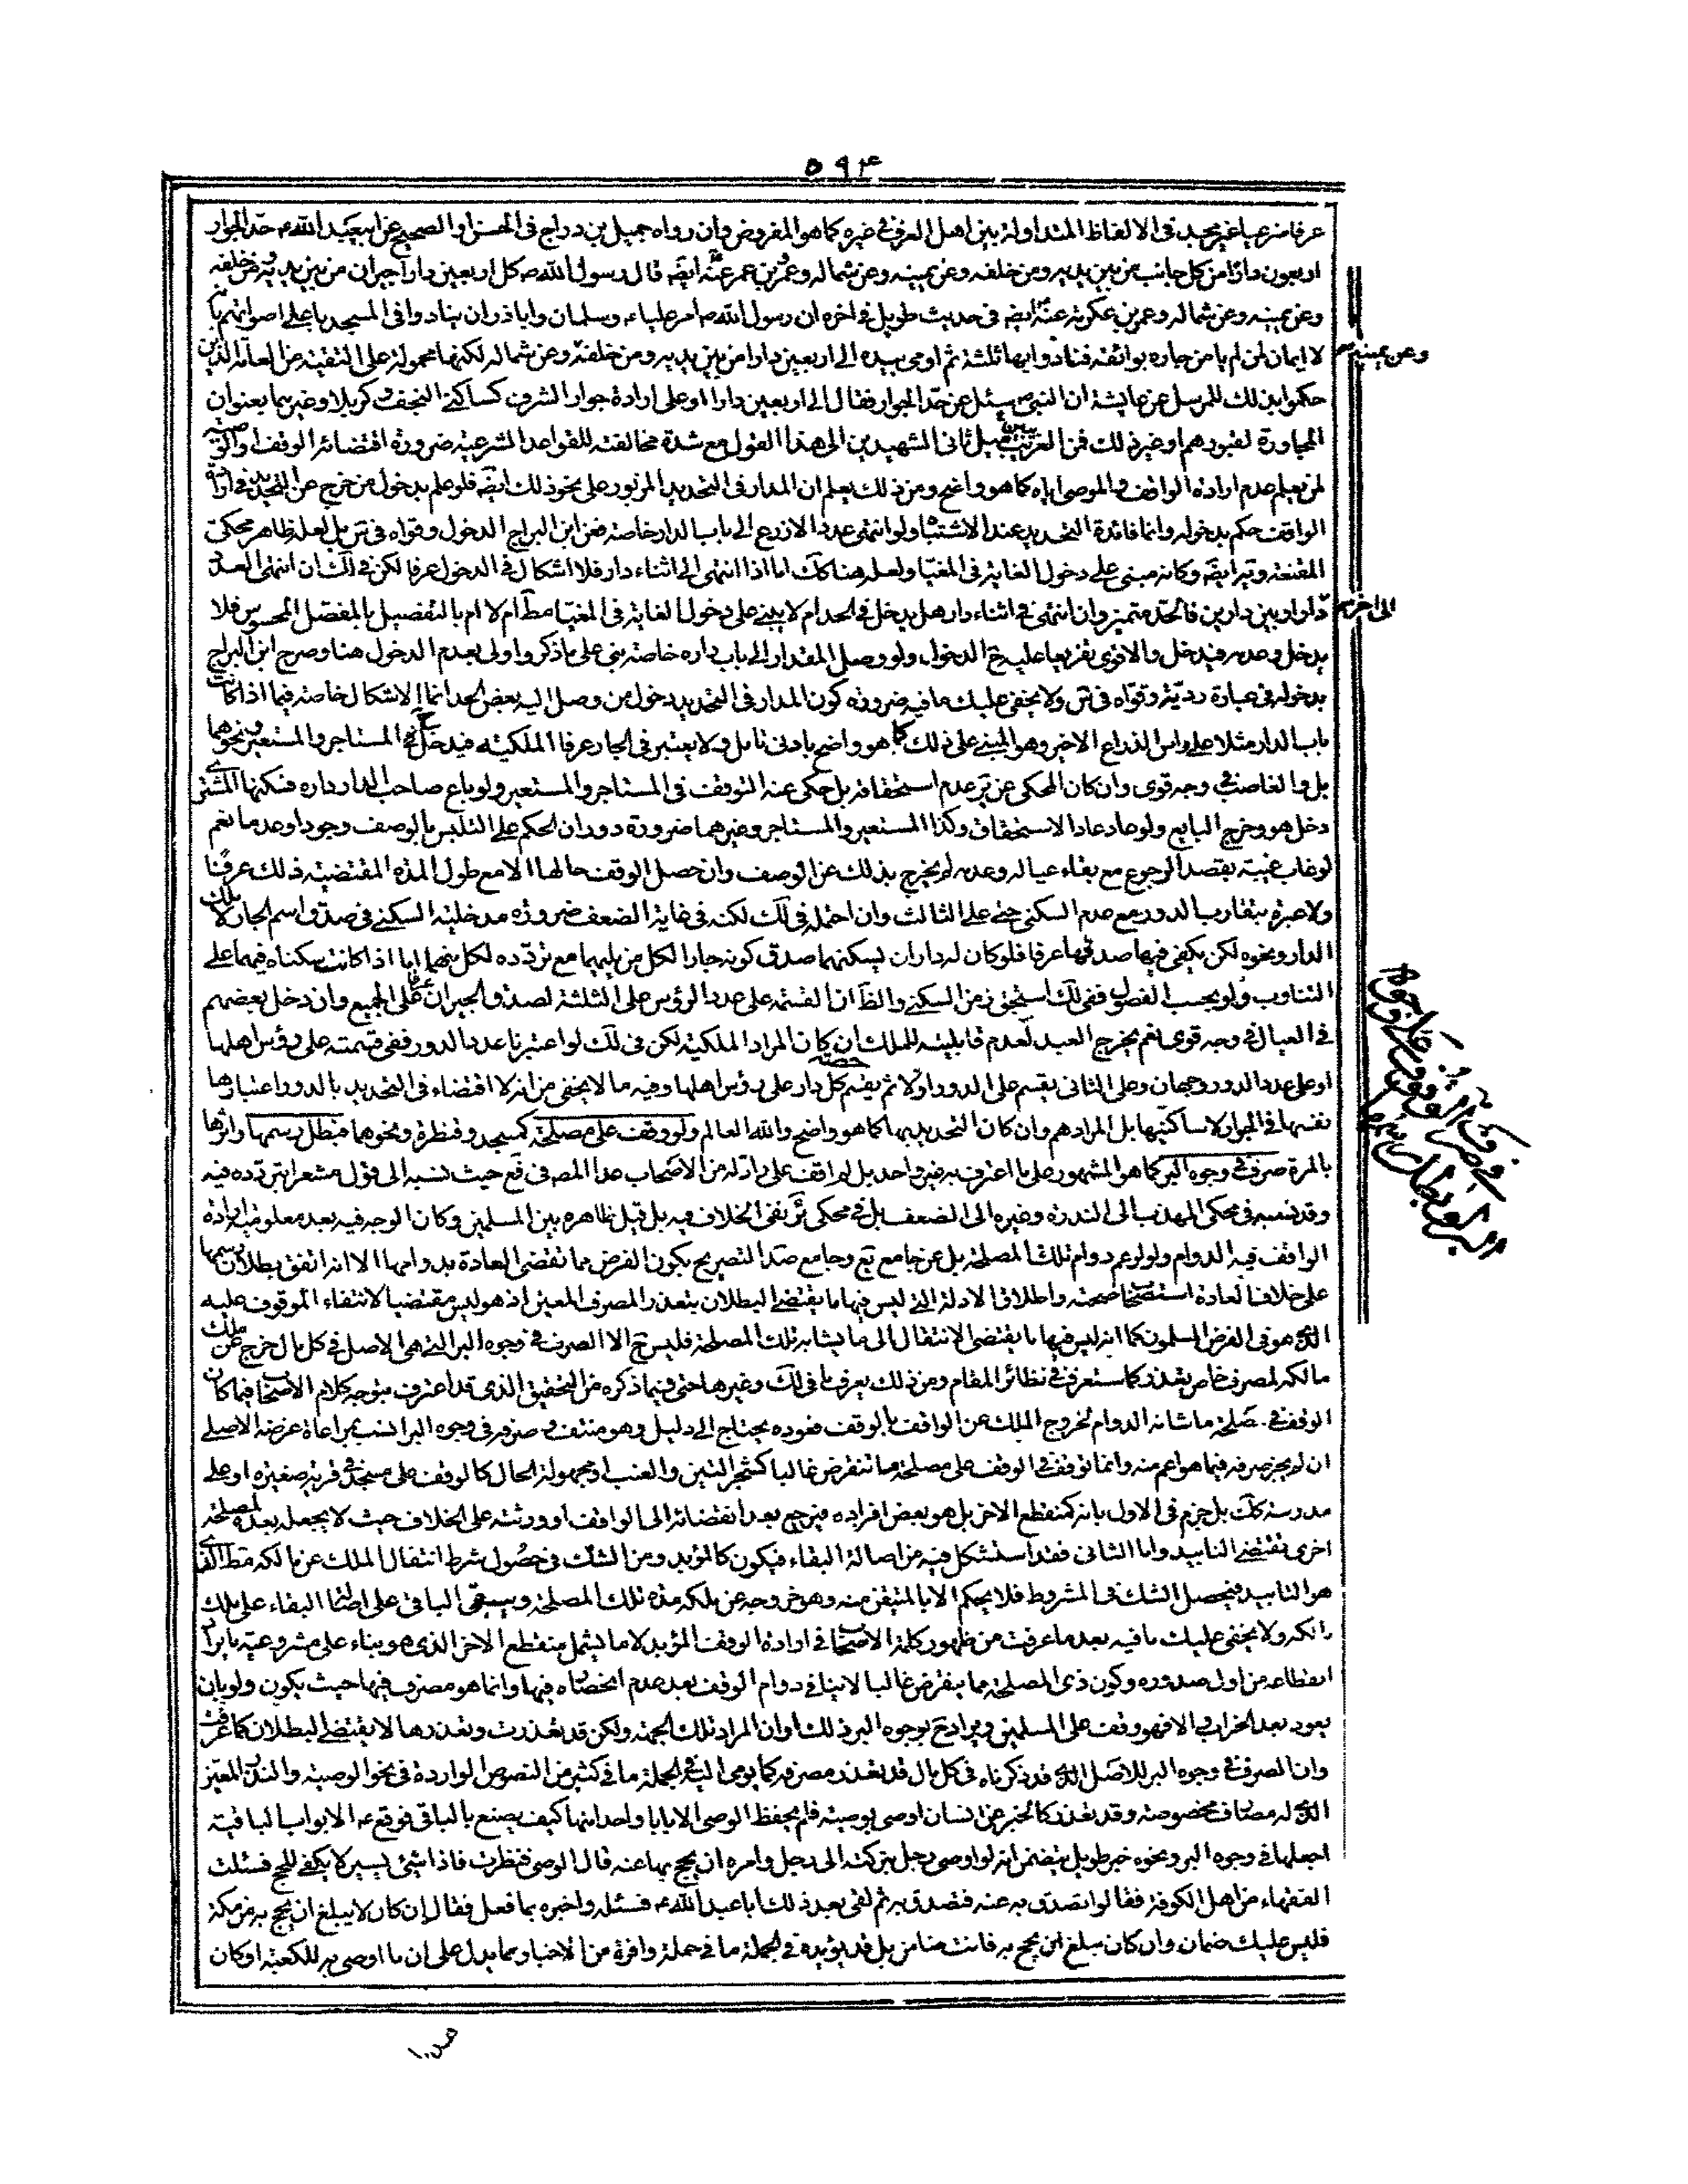 ٥٩٤
عرفا شرعيا غير مجيد فى الالفاظ المتداولة بين اهل العرف فى غيره كما هو المفروض وان رواه جميل بن دراج فى الحسن او الصحيح عن ابيعبد الله ع حد الجوار
اربعون دارا من كل جانب من بين يديه ومن خلفه وعن يمينه وعن شماله وعمرو بن عمر عنه ايضا قال رسول الله ص كل اربعين دارا جيران من بين يديه ومن خلفه
وعن يمينه وعن شماله وعمر بن عكرمة عنه ايضا فى حديث طويل فى اخره ان رسول الله ص امر عليا ع وسلمان واباذر ان ينادوا فى المسجد باعلى اصواتهم
لا ايمان لمن لم يامن جاره بوائقه فنادوا بها ثلثة ثم اومى بيده الى اربعين دارا من بين يديه ومن خلفه وعن شماله لكنها محمولة على التقية من العامة الذين
وعن يمينه
حكموا بذلك للمرسل عن عايشة ان النبى ص سئل عن حد الجوار فقال الى اربعين دارا او على ارادة جوار الشرف كساكنى النجف وكربلا وغيرهما بعنوان
المجاورة لقبورهم او غير ذلك فمن الغريب ميل ثانى الشهيدين الى هذا القول مع شدة مخالفته للقواعد الشرعية ضرورة اقتضائه الوقف او الوصية
لمن يعلم عدم ارادة الواقف والموصى اياه كما هو واضح ومن ذلك يعلم ان المدار فى التحديد المزبور على نحو ذلك ايضا فلو علم بدخول من خرج عن التحديد فى ارادة
الواقف حكم بدخوله وانما فائدة التحديد عند الاشتباه ولو انتهى عدد الاذرع الى باب الدار خاصة فعن ابن البراج الدخول وقواه فى س بل لعله ظاهر محكى
المقنعة وير ايضا وكانه مبنى على دخول الغاية فى المغيا ولعله هنا كك اما اذا انتهى الى اثناء دار فلا اشكال فى الدخول عرفا لكن فى لك ان انتهى العدد
الى اخر
دار او بين دارين فالحد متميز وان انتهى فى اثناء دار هل يدخل فى الحد ام لا يبنى على دخول الغاية فى المغيا مط ام لا ام بالتفصيل بالمفصل المحسوس فلا
يدخل وعدمه فيدخل والاقوى تفريعا عليه ح الدخول ولو وصل المقدار الى باب داره خاصة بنى على ما ذكر واولى بعدم الدخول هنا وصرح ابن البراج
بدخوله فى عبارة ردية وقواه فى س ولا يخفى عليك ما فيه ضرورة كون المدار فى التحديد دخول من وصل اليه بعض الحد انما الاشكال خاصة فيما اذا كانت
باب الدار مثلا على راس الذراع الاخير وهو المبنى على ذلك كما هو واضح بادنى تامل ولا يعتبر فى الجار عرفا الملكية فيدخل ح المستاجر والمستعير ونحوهما
بل والغاصب فى وجه قوى وان كان المحكى عن ير عدم استحقاقه بل حكى عنه التوقف فى المستاجر والمستعير ولو باع صاحب الدار داره فسكنها المشترى
دخل هو وخرج البايع ولو عاد عاد الاستحقاق وكذا المستعير والمستاجر وغيرهما ضرورة دوران الحكم على التلبس بالوصف وجودا وعدما نعم
لو غاب غيبة بقصد الرجوع مع بقاء عياله وعدمه لم يخرج بذلك عن الوصف وان حصل الوقف حالها الا مع طول المدة المقتضية ذلك عرفا
ولا عبرة بتقارب الدور مع عدم السكنى حتى على الثالث وان احتمله فى لك لكنه فى غاية الضعف ضرورة مدخلية السكنى فى صدق اسم الجار لا ملك
الدار ونحوه لكن يكفى فيها صدقها عرفا فلو كان له داران يسكنهما صدق كونه جارا لكل من يليهما مع تردده لكل منهما اما اذا كانت سكناه فيهما على
التناوب ولو بحسب الفصول ففى لك استحق زمن السكنى والظ ان القسمة على عدد الرؤس على الثلثة لصدق الجيران عرفا على الجميع وان دخل بعضهم
فى العيال فى وجه قوى نعم يخرج العبد لعدم قابليته للملك ان كان المراد الملكية لكن فى لك لو اعتبرنا عدد الدور ففى قسمته على رؤس اهلها
او على عدد الدور وجهان وعلى الثانى يقسم على الدور اولا ثم يقسم حصة كل دار على رؤس اهلها وفيه ما لا يخفى من انه لا اقتضاء فى التحديد بالدور اعتبارها
نفسها فى الجوار لا ساكنيها بل المراد هم وان كان التحديد بها كما هو واضح والله العالم ولو وقف على مصلحة كمسجد وقنطرة ونحوهما فبطل رسمها واثرها
بالمرة صرف فى وجوه البر كما هو المشهور على ما اعترف به غير واحد بل لم اقف على راد له من الاصحاب عدا المص فى فع حيث نسبه الى قول مشعرا بتردده فيه
وقد نسبه فى محكى المهذب الى الندرة وغيره الى الضعف بل فى محكى ئر نفى الخلاف فيه بل قيل ظاهره بين المسلمين وكان الوجه فيه بعد معلومية ارادة
الواقف فيه الدوام ولو لزعم دوام تلك المصلحة بل عن جامع يع وجامع صد التصريح بكون الفرض مما تقضى العادة بدوامها الا انه اتفق بطلان رسمها
على خلاف العادة استصحاب صحته واطلاق الادلة التى ليس فيها ما يقتضى البطلان بتعذر المصرف المعين اذ هو ليس مقتضيا لانتفاء الموقوف عليه
الذى هو فى الفرض المسلمون كما انه ليس فيها ما يقتضى الانتقال الى ما يشابه تلك المصلحة فليس ح الا الصرف فى وجوه البر التى هى الاصل فى كل مال خرج عن ملك
مالكه لمصرف خاص تعذر كما ستعرف فى نظائر المقام ومن ذلك يعرف ما فى لك وغيرها حتى فيما ذكره من التحقيق الذى قد اعترف بتوجه كلام الاصحاب فيما كان
الوقف فى مصلحة ما شانه الدوام لخروج الملك عن الواقف بالوقف فعوده يحتاج الى دليل وهو منتف وصرفه فى وجوه البر انسب بمراعاة غرضه الاصلى
ان لم يجز صرفه فيما هو اعم منه وانما توقف فى الوقف على مصلحة ما تنقرض غالبا كشجر التين والعنب او مجهولة الحال كالوقف على مسجد فى قرية صغيرة او على
مدرسة كك بل جزم فى الاول بانه كمنقطع الاخر بل هو بعض افراده فيرجع بعد انقضائه الى الواقف او ورثته على الخلاف حيث لا يجعله بعده لمصلحة
اخرى تقتضى التابيد واما الثانى فقد استشكل فيه من اصالة البقاء فيكون كالمؤبد ومن الشك فى حصول شرط انتقال الملك عن مالكه مطلقا الذى
هو التابيد فيحصل الشك فى المشروط فلا يحكم الا بالمتيقن منه وهو خروجه عن ملكه مدة تلك المصلحة ويبقى الباقى على اصالة البقاء على ملك
مالكه ولا يخفى عليك ما فيه بعد ما عرفت من ظهور كلمة الاصحاب فى ارادة الوقف المؤبد لا ما يشمل منقطع الاخر الذى هو بناء على مشروعيته يراد
انقطاعه من اول صدوره وكون ذى المصلحة مما ينقرض غالبا لا ينافى دوام الوقف بعد عدم انحصاره فيها وانما هو مصرف فيها حيث يكون ولو بان
يعود بعد الخراب والا فهو وقف على المسلمين ويراد ح بوجوه البر ذلك او ان المراد تلك الجهة ولكن قد تعذرت وتعذرها لا يقتضى البطلان كما عرفت
وان الصرف فى وجوه البر للاصل الذى قد ذكرناه فى كل مال قد تعذر مصرفه كما يومى اليه فى الجملة ما فى كثير من النصوص الواردة فى نحو الوصية والنذر المعين
الذى له مصارف مخصوصة وقد تعذر كالخبر عن انسان اوصى بوصية فلم يحفظ الوصى الا بابا واحدا منها كيف يصنع بالباقى فوقع ع الابواب الباقية
اجعلها فى وجوه البر ونحوه خبر طويل يتضمن انه لو اوصى رجل بتركته الى رجل وامره ان يحج بها عنه قال الوصى فنظرت فاذا شئ يسير لا يكفى للحج فسئلت
الفقهاء من اهل الكوفة فقالوا تصدق به عنه فتصدق به ثم لقى بعد ذلك ابا عبد الله ع فسئله واخبره بما فعل فقال ان كان لا يبلغ ان يحج به من مكة
فليس عليك ضمان وان كان يبلغ ان يحج به فانت ضامن بل قد يؤيده فى الجملة ما فى جملة وافرة من الاخبار مما يدل على ان ما اوصى به للكعبة او كان